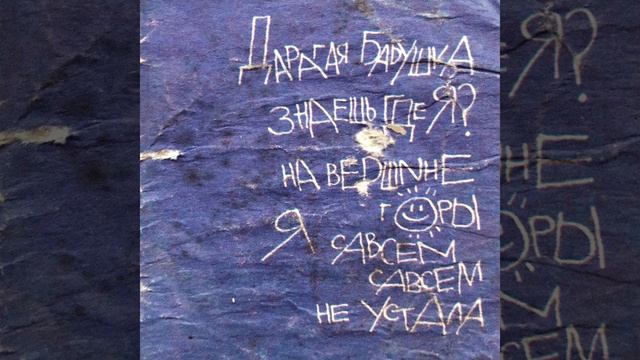 Дарагая Бабушка
знаешь где Я?
на вершине
горы
Я савсем
савсем
не устала